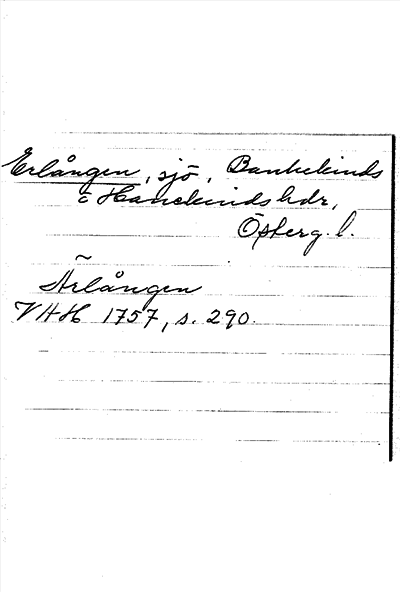 Erlången, sjö, Bankekinds
o Hanekinds hdr,
Österg. l.
Ärlången
VHH 1757, s. 290.